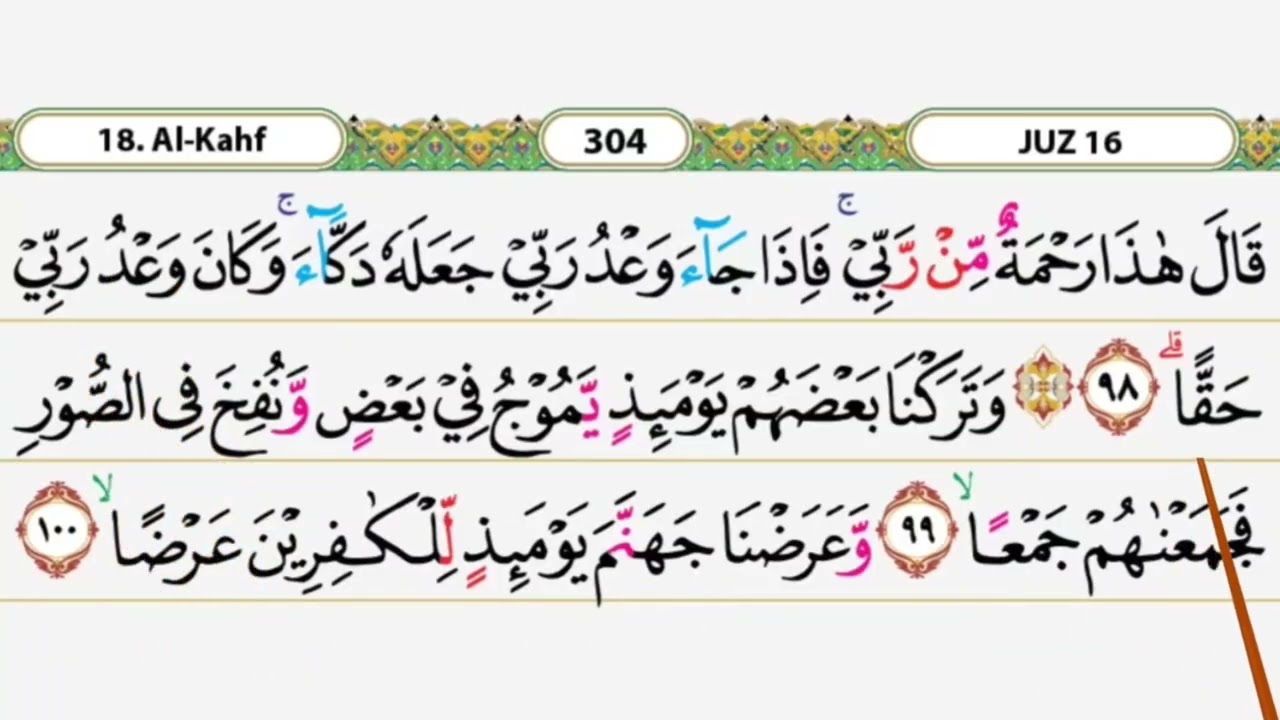 18. Al-Kahf 304 JUZ 16
قَالَ هٰذَا رَحْمَةٌ مِّنْ رَّبِّيْۚ فَاِذَا جَاۤءَ وَعْدُ رَبِّيْ جَعَلَهٗ دَكَّاۤءَۚ وَكَانَ وَعْدُ رَبِّيْ
حَقًّاۗ ٩٨ وَتَرَكْنَا بَعْضَهُمْ يَوْمَىِٕذٍ يَّمُوْجُ فِيْ بَعْضٍ وَّنُفِخَ فِى الصُّوْرِ
فَجَمَعْنٰهُمْ جَمْعًاۙ ٩٩ وَّعَرَضْنَا جَهَنَّمَ يَوْمَىِٕذٍ لِّلْكٰفِرِيْنَ عَرْضًاۙ ١٠٠